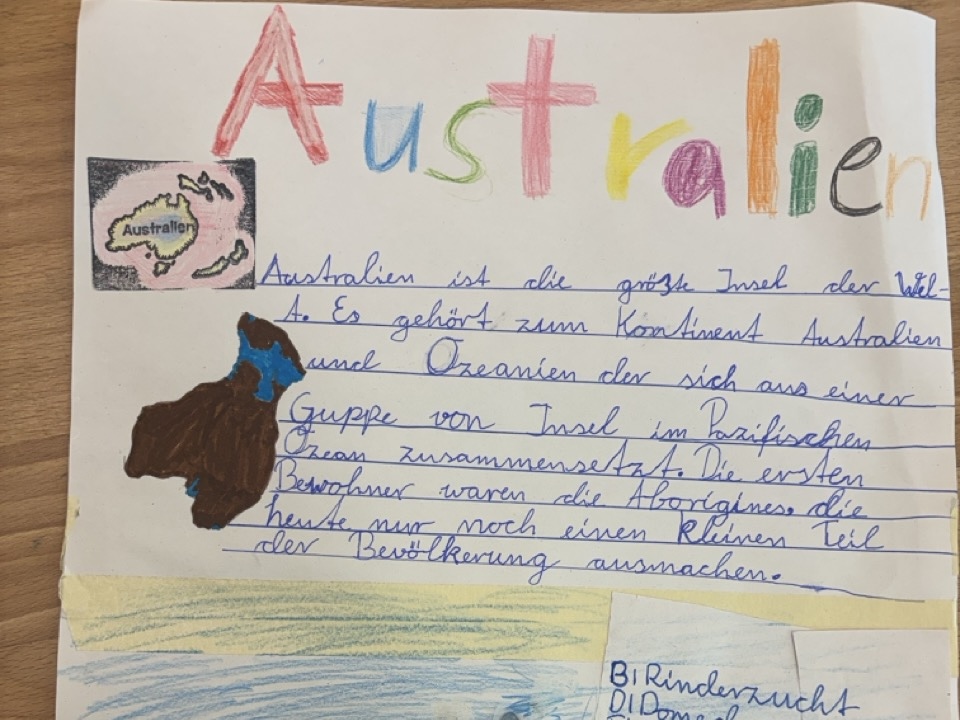 Australien
Australien
Australien ist die größte Insel der Wel-
t. Es gehört zum Kontinent Australien
und Ozeanien der sich aus einer
Guppe von Insel im Pazifischen
Ozean zusammensetzt. Die ersten
Bewohner waren die Aborigines. die
heute nur noch einen kleinen Teil
der Bevölkerung ausmachen.
B) Rinderzucht
D)